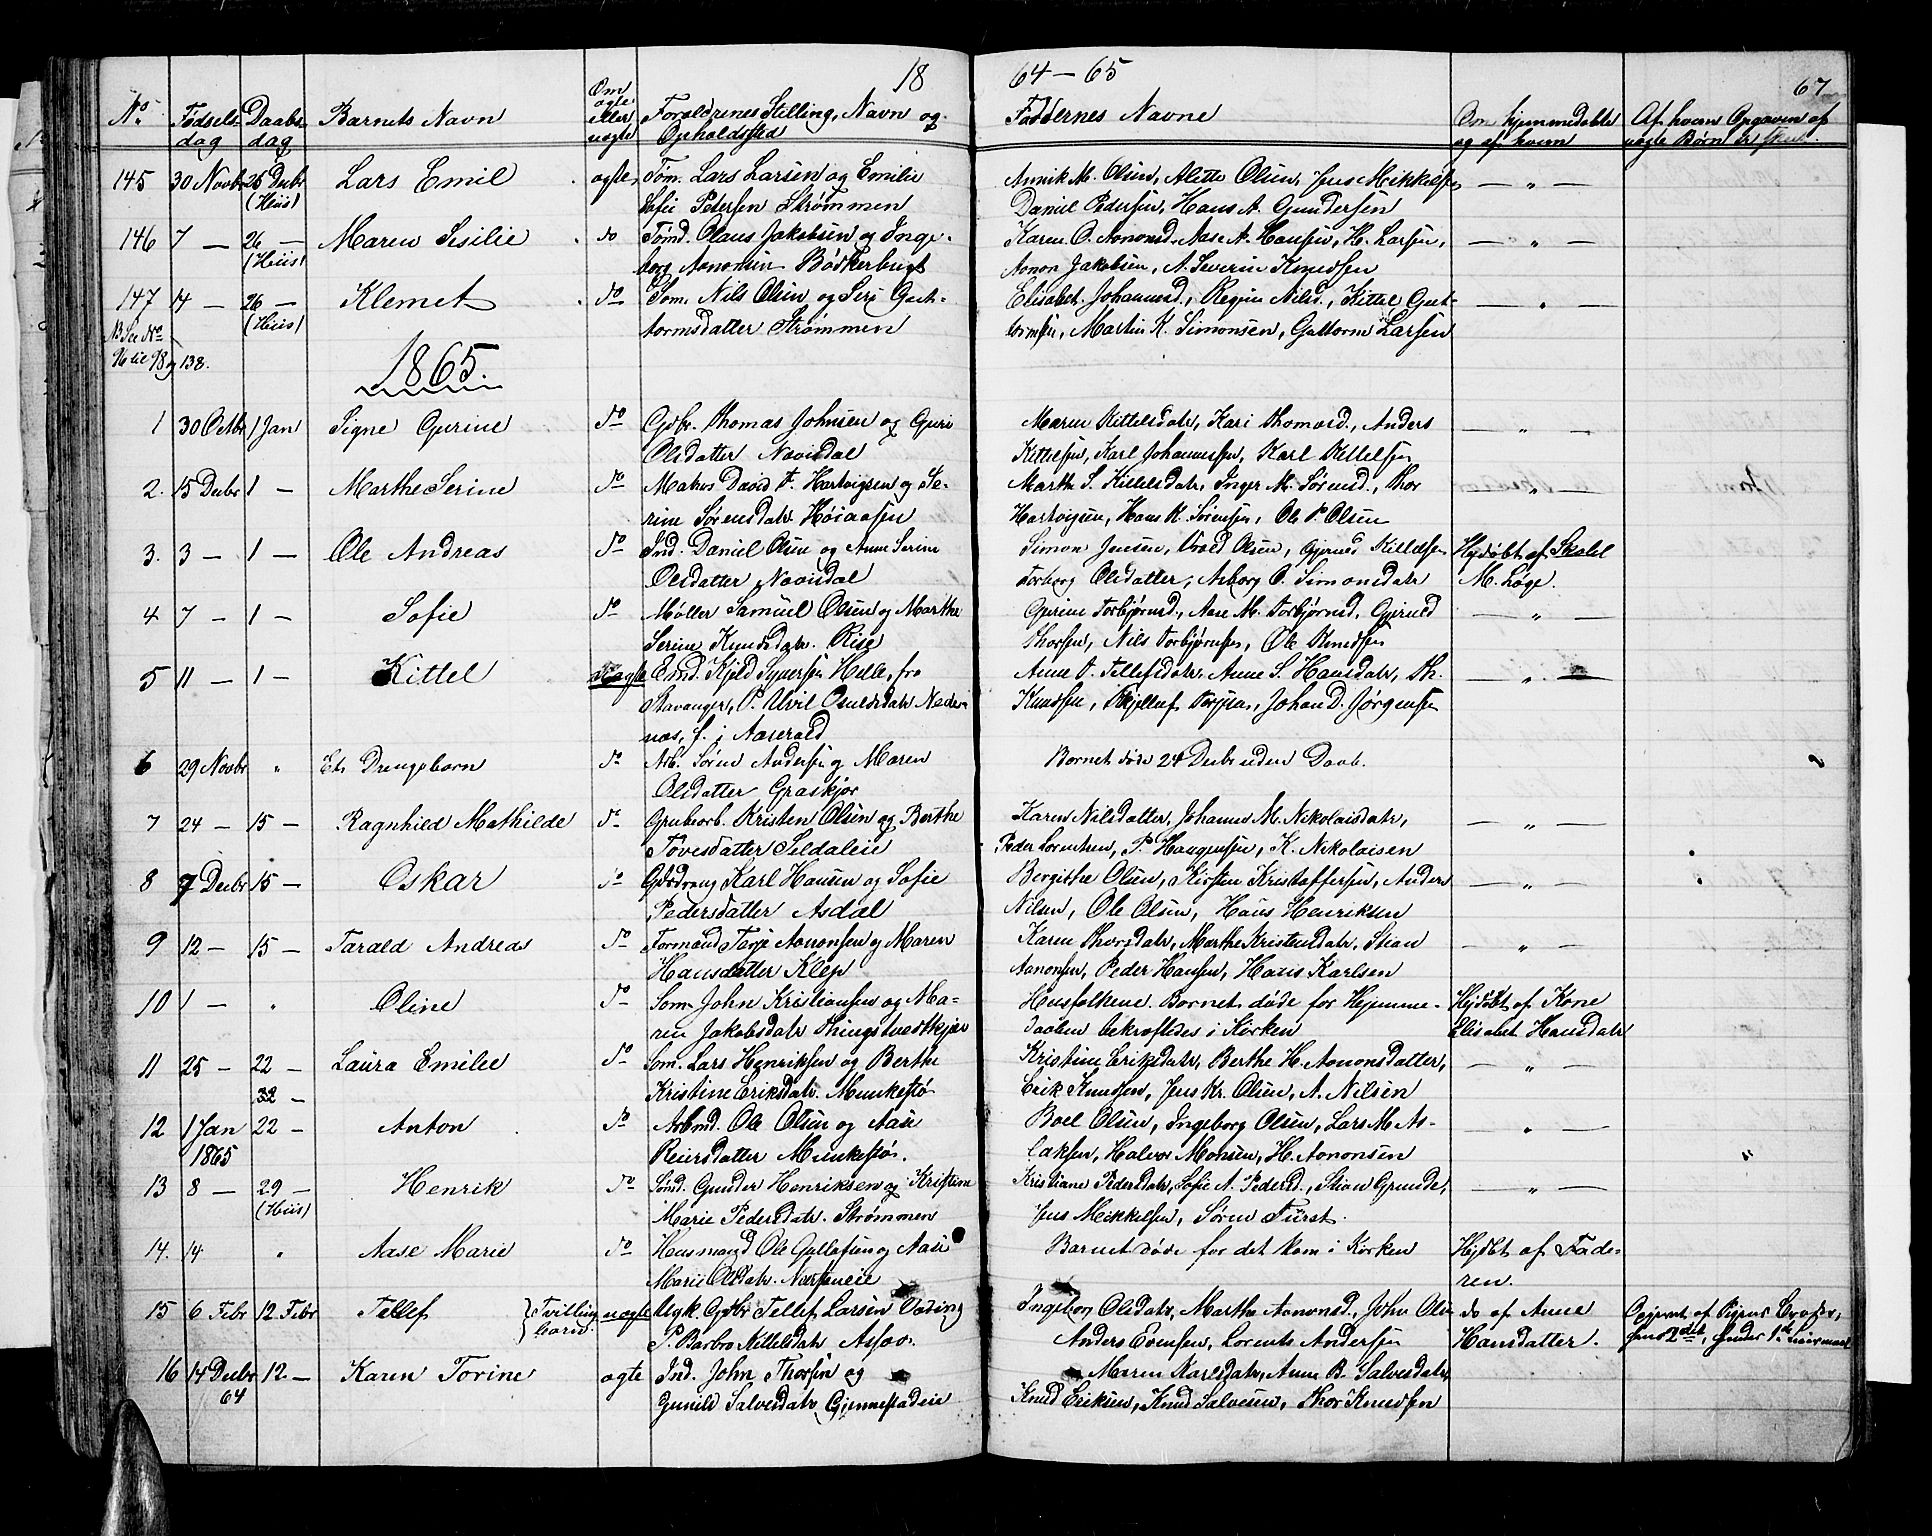 18 64-65 67
No Fødsels- dag Daabs- dag Barnets Navn Om ægte eller uægte Forældrenes Stilling, Navn og Opholdssted Faddernes Navne Om hjemmedøbte og af hvem Af hvem Opgaven af uægte Børn
145 30 Novbr 26 Decbr Lars Emil ægte Tøm. Lars Larsen og Emilie Annik M. Olsen, Alette Olsen, Jens Mikkelsen — " —
(Hiis) Sofie Petersen Strømmen Daniel Pedersen, Hans A. Gundersen
146 7 — 26 — Maren Sesilie do Tømd. Olaus Jakobsen og Inge- Karen O. Aanonsd, Aase A. Hansen, H. Larsen, — " —
(Hiis) borg Aanonsen Bødkerbugt Aanon Jakobsen, A. Severin Knudsen
147 14 — 26 — Klemet do Søm. Nils Olsen og Seri Gut- Elisabet Johannesd., Regine Nilsd., Kittel Gut- — " —
(Hiis) tormsdatter Strømmen tormsen, Martin K. Simonsen, Guttorm Larsen
NB See No
96 til 98 og 138.
1865.
1 30 Octbr 1 Jan Signe Gurine do Gdbr. Thomas Johnsen og Guri Maren Kittelsdatr, Kari Thomasd., Anders — " —
Olsdatter Navisdal Kittelsen, Karl Johannessen, Karl Kittelsen
2. 15 Decbr 1 — Marthe Serine do Matros David F. Hartvigsen og Se- Marthe S. Kittelsdatr, Inger M. Sørensd., Thor — " —
rine Sørensdatr. Høiaasen Hartvigsen, Hans K. Sørensen, Ole P. Olsen
3. 3 — 1 — Ole Andreas do Ind. Daniel Olsen og Anne Serine Simon Jensen, Olsen, Gjerud Kittelsen Hjdøbt af Skolel
Olsdatter Navisdal Torborg Olsdatter, Asborg O. Simonsdatr M. Løge.
4 7 — 1 — Sofie do Møller Samuel Olsen og Marthe Gurine Torbjørnsd., Aase M. Torbjørnsd, Gjeruld — " —
Serine Knudsdatr. Rise Thorsen, Nils Torbjørnsen, Ole Knudsen
5 11 — 1 — Kittel uægte Emd. Kjeld Syversen Helle, fra Anne T. Tellefsdatr. Anne S. Hansdatr, Th. — " —
Stavanger, P. Osuldsdatr Nede- Knudsen, Tarjesen, Johan D. Jørgensen
næs, f. i Aaserald
6 29 Novbr " Et Drengebarn do Arb. Søren Andersen og Maren Barnet døde 24 Decbr uden Daab.
Olsdatter Graskjær
7 24 — 15 — Ragnhild Mathilde do Grubearb. Kristen Olsen og Berthe Karen Nilsdatter, Johanne M. Nikolaisdatr, — " —
Tovesdatter Seldaleie Peder Lorentsen, P. Haagensen, K. Nikolaisen
8 7 Decbr 15 — Oskar do Gaardg Karl Hansen og Sofie Bergithe Olsen, Kirsten Kristoffersen, Anders — " —
Pedersdatter Asdal Nilsen, Ole Olsen, Hans Henriksen
9 12 — 15 — Tarald Andreas do Formand Tarje Aanonsen og Maren Karen Thorsdatr, Marthe Kristensdatr. Stian — " —
Hansdatter Klep Aanonsen, Peder Hansen, Hans Karlsen
10 1 — " Oline do Søm. John Kristiansen og Ma- Husfolkene. Barnet døde før Hjemme- Hjdøbt af Kone
ren Jakobsdatr Thingstvedtkjær daaben bekræftedes i Kirken Elisabet Hansdatr
11 25 — 22 — Laura Emilie do Søm. Lars Henriksen og Berthe Kristine Eriksdatr, Berthe H. Aanonsdatter, — " —
32 — Kristine Eriksdatr. Munkestø Erik Knudsen, Jens Kr. Olsen, A. Nilsen
12 1 Jan 22 — Anton do Arbmd. Ole Olsen og Aase Boel Olsen, Ingeborg Olsen, Lars M. As- — " —
1865 Reiersdatter Munkestø. laksen, Halvor Monsen, H. Aanonsen "
13 8 — 29 — Henrik do Sømd. Gunder Henriksen og Kristine Kristiane Pedersdatr, Sofie A. Pedersd., Stian Grunde, — " —
(Hiis) Marie Pedersdatr. Strømmen Jens Mikkelsen, Søren Fürst.
14. 14. " Aase Marie do Husmand Ole Gullefsen og Aase Barnet døde før det kom i Kirken Hjdbt af Fade-
Marie Olsdatr. Næsseneie ren.
15 6 Febr 12. Febr Tellef } Tvilling uægte Ugk. Gdbr Tellef Larsen Væding Ingeborg Olsdatr, Marthe Aanonsd., John Olsen do af Anne Opgivet af Pigens Broder,
barn. P. Barbro Nilsdatr Assæv. Anders Evensen, Lorents Andersen Hansdatter. hendes 2det, hendes 1ste Leiermaal
16 14 Decbr 12. — Karen Torine ægte Ind. John Thorsen og Maren Karlsdatr, Anne B. Salvesdatr,
64 Gunild Salvesdatr Gjennestadeie Knud Eriksen, Knud Salvesen, Thor Knudsen